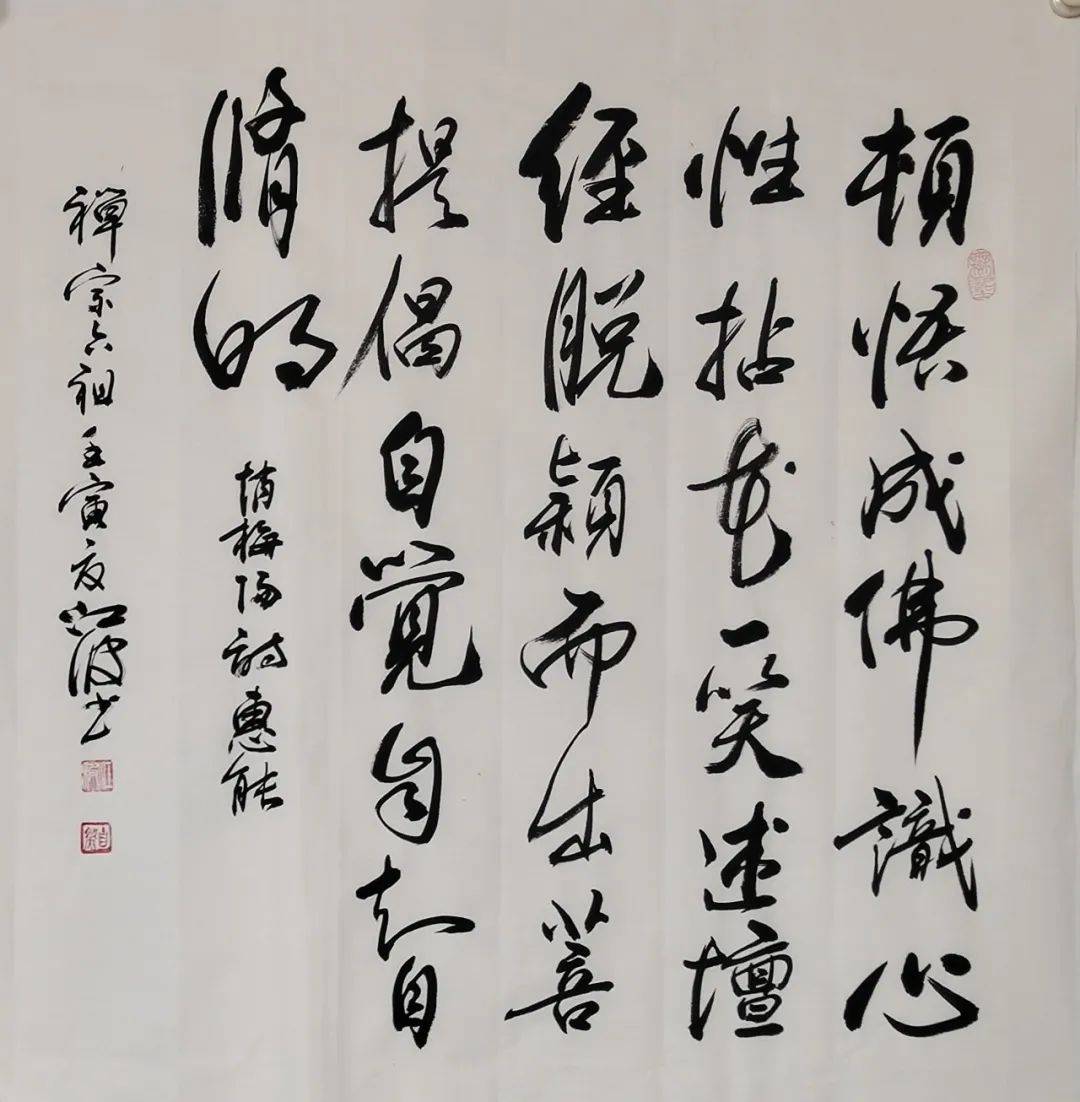 頓悟成佛識心
性拈花一笑述壇
經脫穎而出菩
提偈自覺自知自
脩明
摘梅陽詩惠能
禪宗六祖壬寅夏江波书